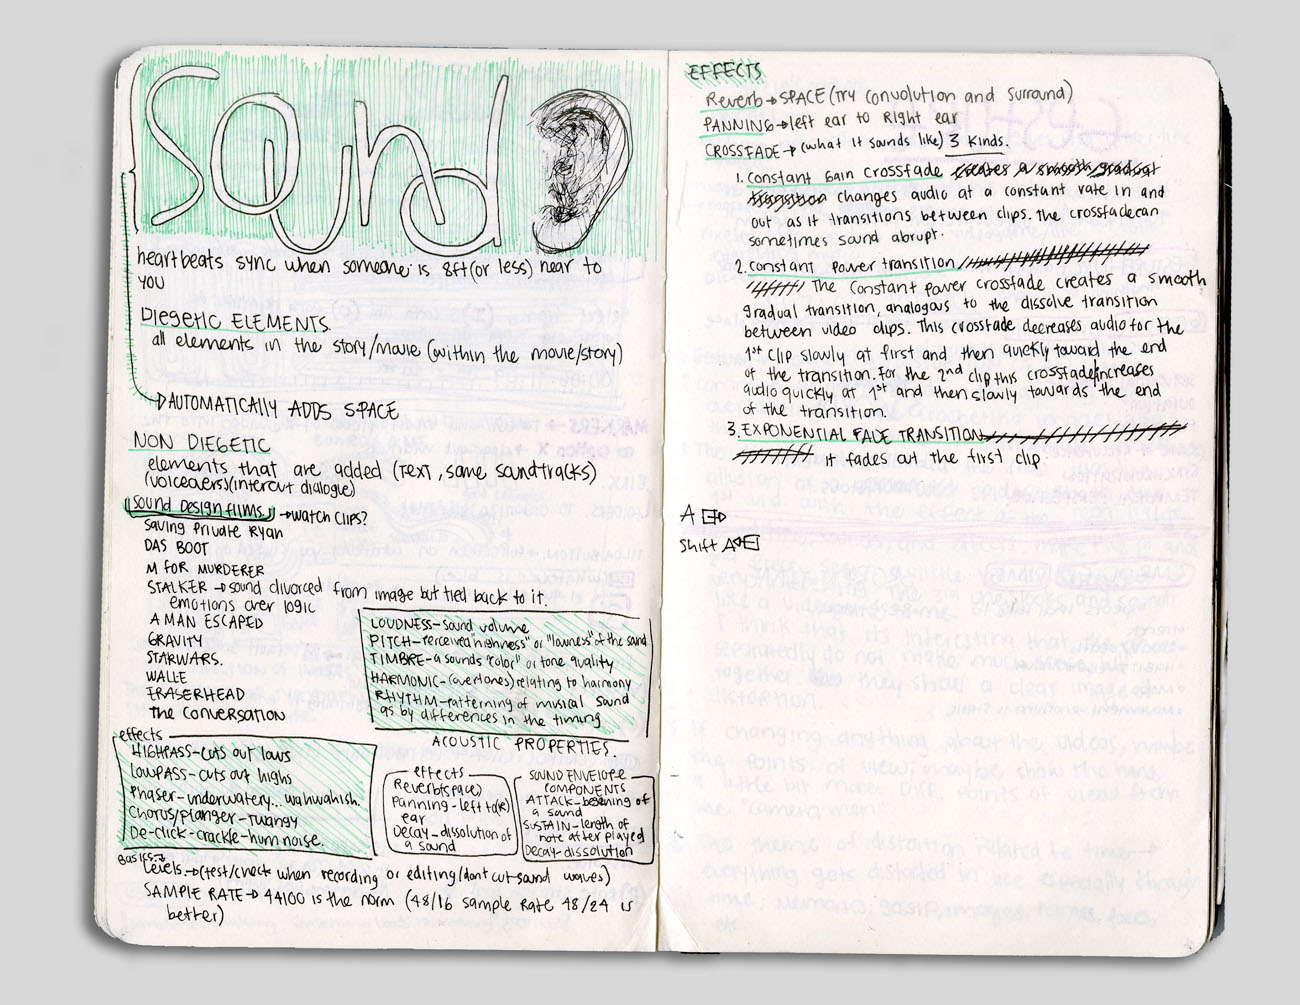 Sound
heartbeats sync when someone is 8ft (or less) near to
you
DIEGETIC ELEMENTS
all elements in the story/movie (within the movie/story)
→AUTOMATICALLY ADDS SPACE
NON DIEGETIC
elements that are added (TEXT, some soundtracks)
(voiceovers) (intercut dialogue)
sound design films → watch clips?
Saving Private Ryan
DAS BOOT
M FOR MURDERER
STALKER → sound divorced from image but tied back to it.
emotions over logic
A MAN ESCAPED
GRAVITY
STARWARS.
WALLE
ERASERHEAD
THE CONVERSATION
LOUDNESS-sound volume
PITCH-perceived "highness" or "lowness" of the sound
TIMBRE-a sounds "color" or tone quality
HARMONIC-(overtones) relating to harmony
RHYTHM-patterning of musical sound
as by differences in the timing
ACOUSTIC PROPERTIES.
effects
HIGHPASS-cuts out lows
LOWPASS-cuts out highs
Phaser-underwatery.. wahwahish.
Chorus/flanger-twangy
De-click-crackle-hum noise.
effects
Reverb(space)
Panning-left to (R)
ear
Decay-dissolution of
a sound
SOUND ENVELOPE
COMPONENTS
ATTACK-begening of
a sound
SUSTAIN-length of
note after played
Decay-dissolution
Basics→
Levels→(test/check when recording or editing/dont cut sound waves)
SAMPLE RATE→ 44100 is the norm (48/16 sample rate 48/24 is
better)
EFFECTS
Reverb→SPACE (Try convolution and surround)
PANNING→left ear to Right ear
CROSSFADE→(what it sounds like) 3 kinds.
1. Constant Gain crossfade creates a smooth gradual
transition changes audio at a constant rate in and
out as it transitions between clips. The crossfade can
sometimes sound abrupt.
2. Constant Power transition
The Constant power crossfade creates a smooth
gradual transition, analogous to the dissolve transition
between video clips. This crossfade decreases audio for the
1st clip slowly at first and then quickly toward the end
of the transition. For the 2nd clip this crossfade increases
audio quickly at 1st and then slowly towards the end
of the transition.
3. EXPONENTIAL FADE TRANSITION
it fades out the first clip
A
Shift A